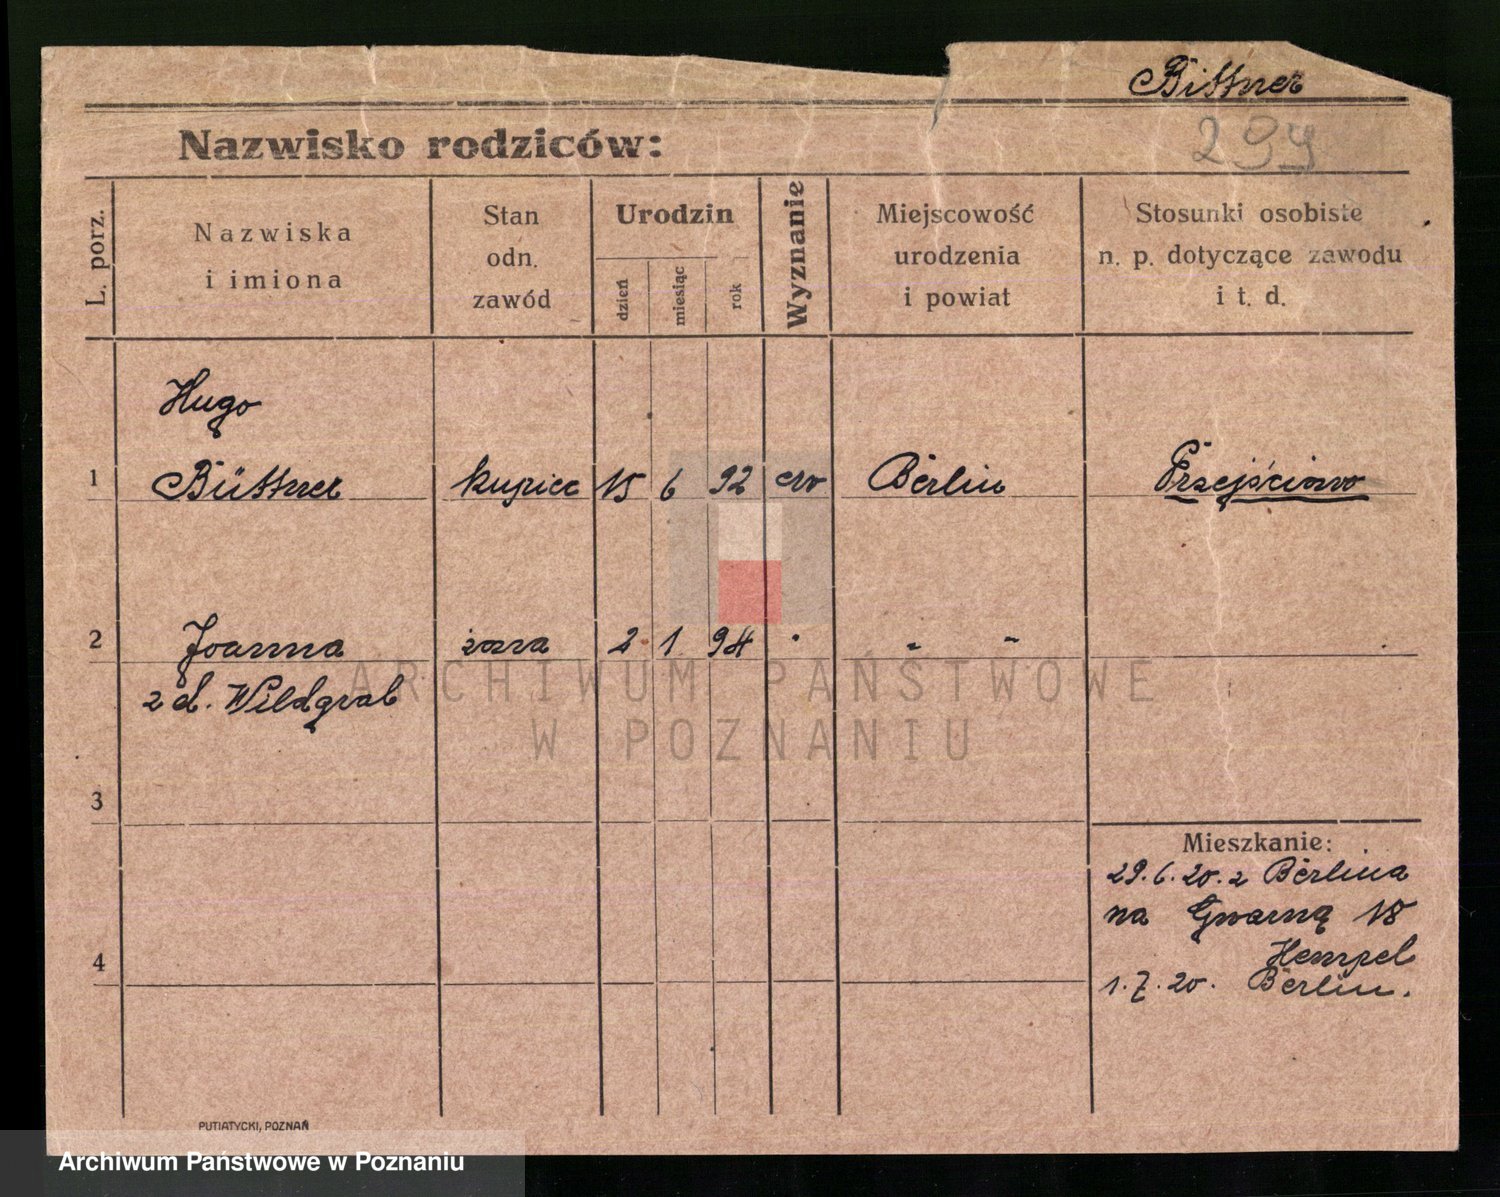 Bittner
299
Nazwisko rodziców:
L. porz.
Nazwiska
i imiona
Stan
odn.
zawód
Urodzin
dzień
miesiąc
rok
Wyznanie
Miejscowość
urodzenia
i powiat
Stosunki osobiste
n. p. dotyczące zawodu
i t. d.
Hugo
1 Büttner kupiec 15 6 92 ew Berlin Przejściowo
2 Joanna żona 2 1 94 " " "
z d. Wildgrab
3
Mieszkanie:
29.6.20. z Berlina
na Gwarną 18
Hempel
4
1.7.20. Berlin.
PUTIATYCKI, POZNAŃ
ARCHIWUM PAŃSTWOWE
W POZNANIU
Archiwum Państwowe w Poznaniu